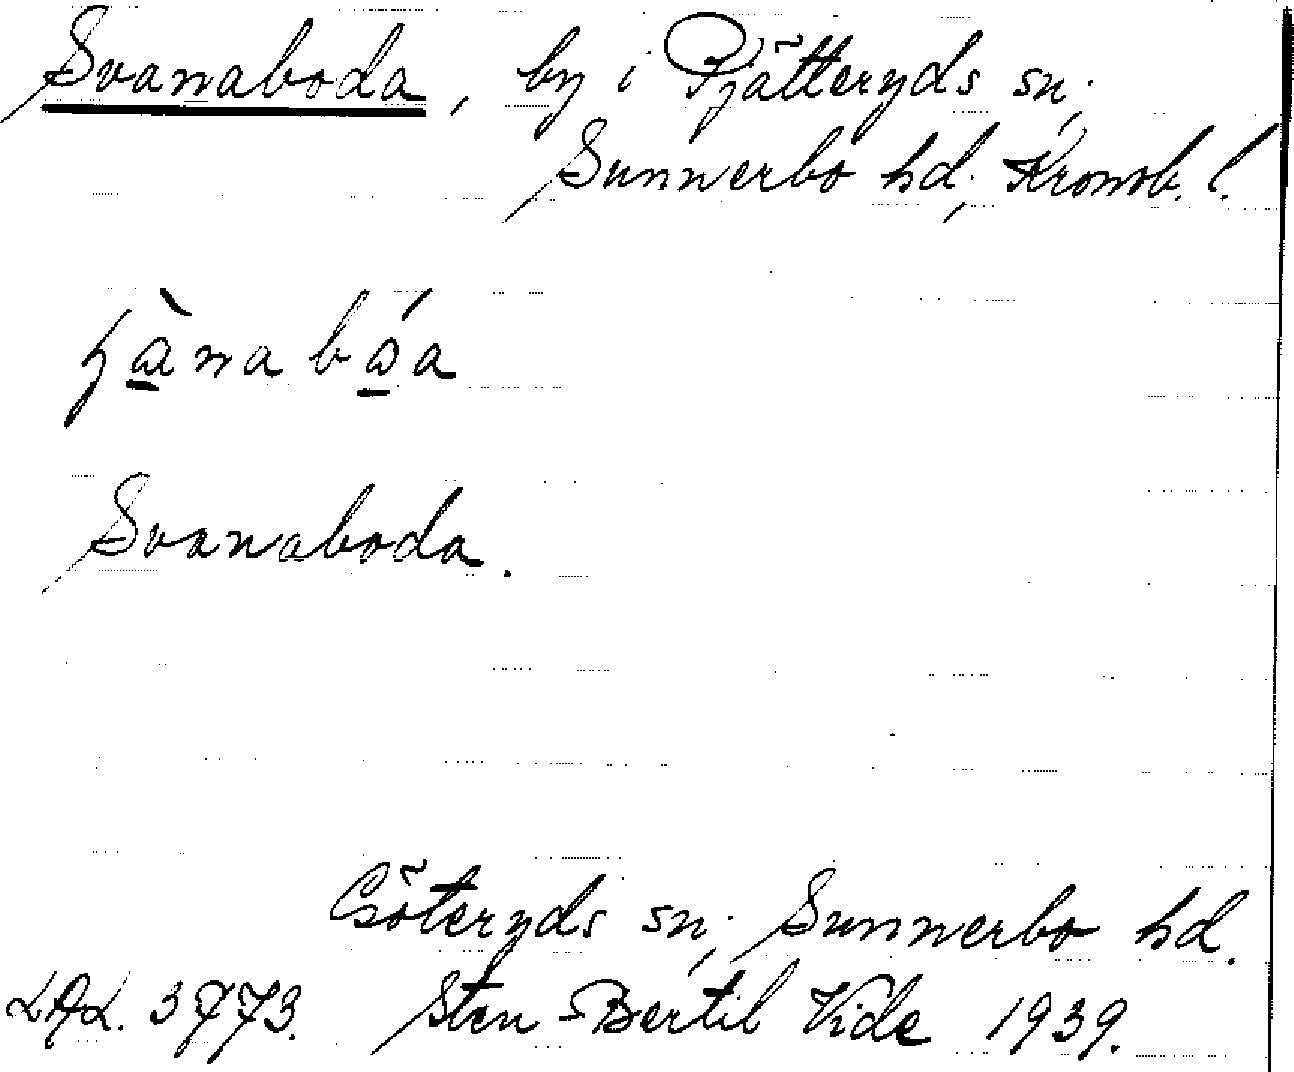 Svanaboda, by i Pjätteryds sn;
Sunnerbo hd, Kronob. l.
Svanaboda.
Göteryds sn; Sunnerbo hd.
LAL. 3773. Sten-Bertil Vide 1939.